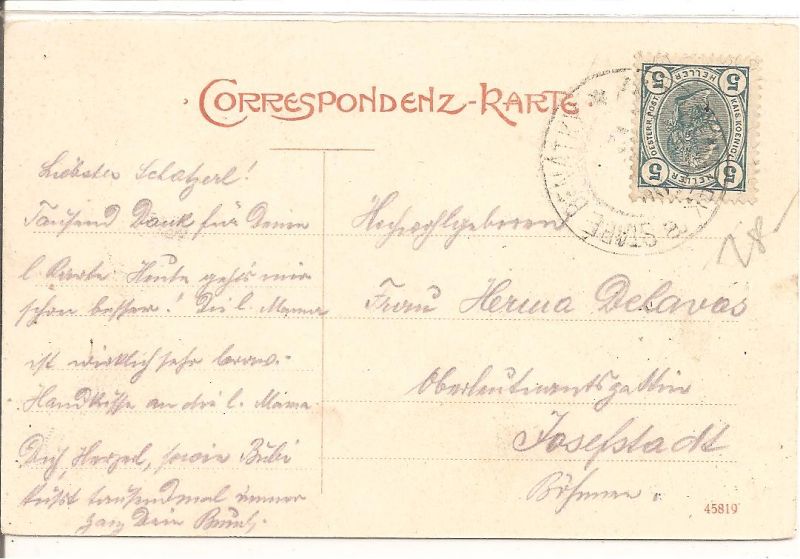 CORRESPONDENZ-KARTE
Liebster Schatzerl!
Tausend Dank für Deine
l. Karte Heute geht's mir
schon besser! Die l. Mama
ist wirklich sehr brav.
Handküsse an die l. Mama
Dich, Herzerl, sowie Bubi
küsst tausendmal immer
ganz Dein
Hochwohlgeboren
Frau Herma Delavos
Oberleutnantsgattin
Josefstadt
Böhmen.
5 HELLER 5
OESTERR. POST
KAIS. KOENIGL.
5 HELLER 5
28
45819